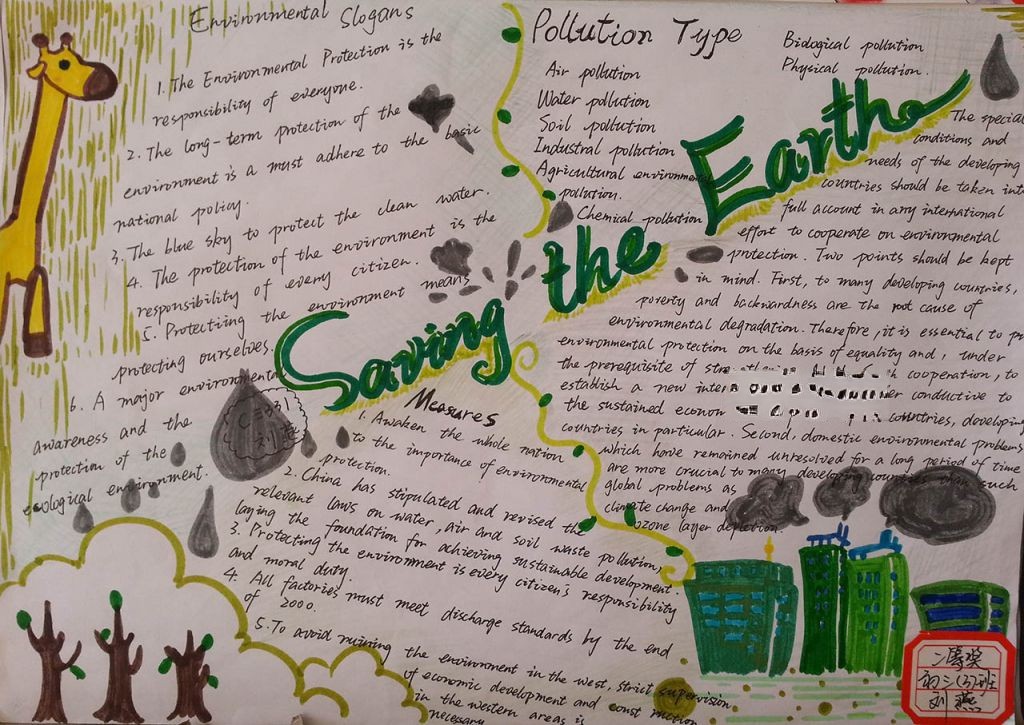 Environmental Slogans
1. The Environmental Protection is the
responsibility of everyone.
2. The long-term protection of the
environment is a must adhere to the basic
national policy.
3. The blue sky to protect the clean water.
4. The protection of the environment is the
responsibility of every citizen.
5. Protectiing the environment means
protecting ourselves.
6. A major environmental
awareness and the
protection of the
ecological environment.
Pollution Type
Air pollution
Water pollution
Soil pollution
Industral pollution
Agricultural environmental
pollution.
Chemical pollution
Biological pollution
Physical pollution.
Saving the Earth
The special
conditions and
needs of the developing
countries should be taken into
full account in any international
effort to cooperate on environmental
protection. Two points should be kept
in mind. First, to many developing countries,
poverty and backwardness are the root cause of
environmental degradation. Therefore, it is essential to
environmental protection on the basis of equality and, under
the prerequisite of cooperation, to
establish a new conducive to
the sustained countries, developing
countries in particular. Second, domestic environmental problems
which have remained unresolved for a long period of time
are more crucial to many developing countries than such
global problems as
climate change and
ozone layer depletion.
Measures
1. Awaken the whole nation
to the importance of environmental
protection.
2. China has stipulated and revised the
relevant laws on water, air and soil waste pollution,
laying the foundation for achieving sustainable development.
3. Protecting the environment is every citizen's responsibility
and moral duty.
4. All factories must meet discharge standards by the end
of 2000.
5. To avoid ruining the environment in the west, strict supervision
of economic development and construction
in the western areas is
necessary
二等奖
初二(3)班
刘燕